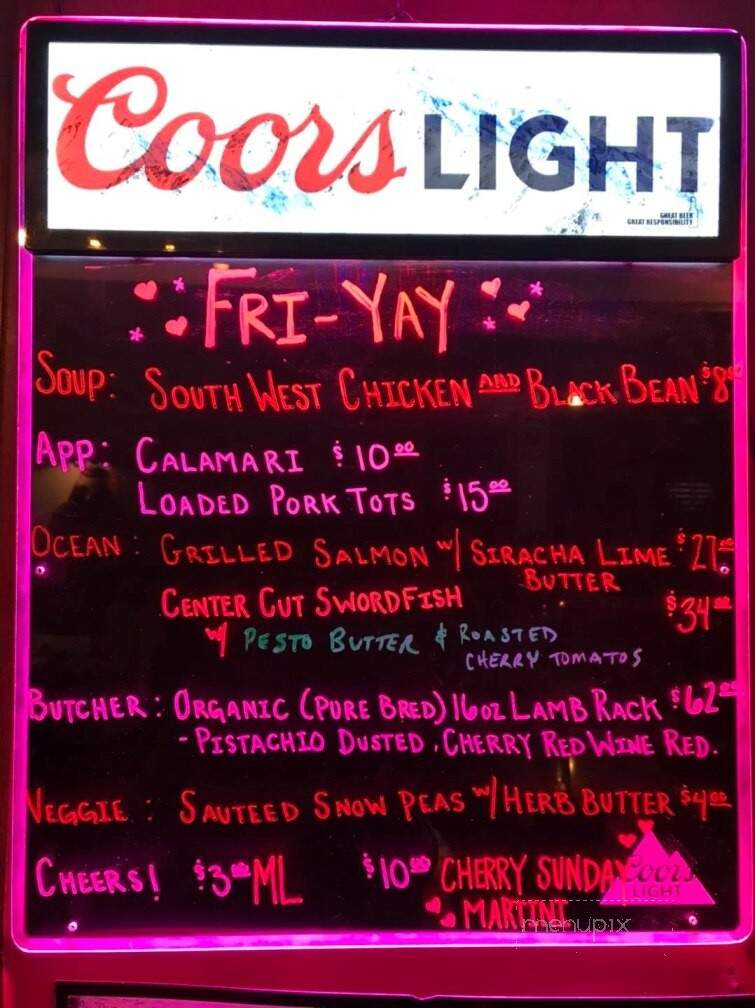 Coors LIGHT
GREAT BEER
GREAT RESPONSIBILITY
FRI-YAY
SOUP: SOUTH WEST CHICKEN AND BLACK BEAN $8.00
APP: CALAMARI $10.00
LOADED PORK TOTS $15.00
OCEAN: GRILLED SALMON W/ SIRACHA LIME $27.00
BUTTER
CENTER CUT SWORDFISH $34.00
W/ PESTO BUTTER & ROASTED
CHERRY TOMATOS
BUTCHER: ORGANIC (PURE BRED) 16OZ LAMB RACK $62.00
- PISTACHIO DUSTED, CHERRY RED WINE RED.
VEGGIE: SAUTEED SNOW PEAS W/ HERB BUTTER $4.00
CHEERS! $3.00 ML $10.00 CHERRY SUNDAY
MARTINI
Coors
LIGHT
menupix